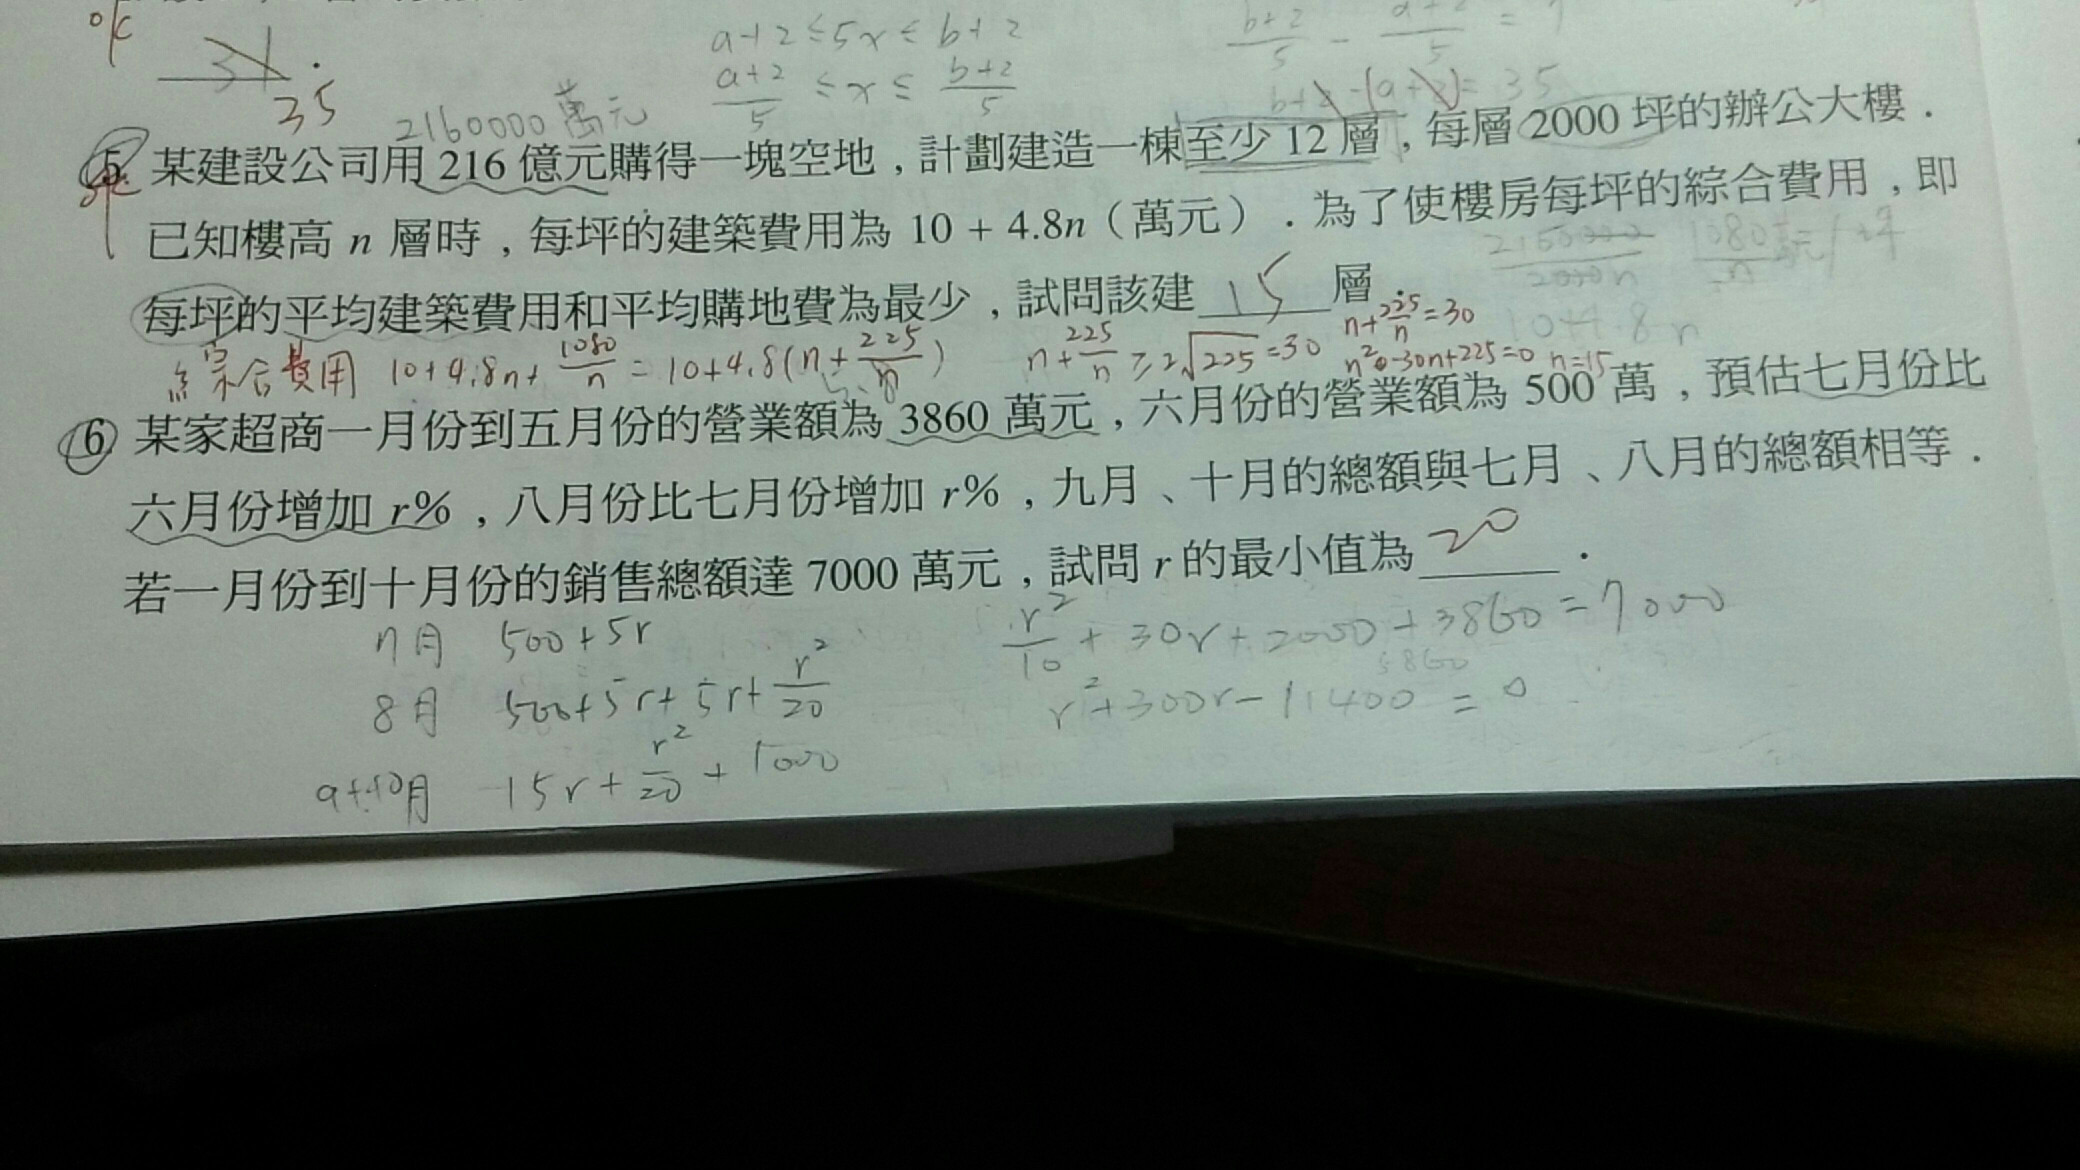 ok
31.
35
a+2≤5x≤b+2
(a+2)/5 ≤ x ≤ (b+2)/5
b+2-(a+2)=35
2160000萬元
5 某建設公司用 216 億元購得一塊空地，計劃建造一棟至少 12 層，每層 2000 坪的辦公大樓．
已知樓高 n 層時，每坪的建築費用為 10 + 4.8n（萬元）．為了使樓房每坪的綜合費用，即
2160000/2000n 1080/n 萬元/坪
每坪的平均建築費用和平均購地費為最少，試問該建 15 層．
10+4.8n
n+225/n=30
綜合費用 10+4.8n+1080/n = 10+4.8(n+225/n) n+225/n ≥ 2√225=30 n=15
6 某家超商一月份到五月份的營業額為 3860 萬元，六月份的營業額為 500 萬，預估七月份比
六月份增加 r%，八月份比七月份增加 r%，九月、十月的總額與七月、八月的總額相等．
若一月份到十月份的銷售總額達 7000 萬元，試問 r 的最小值為 20 ．
7月 500+5r
r²/10+30r+2000+3860=7000
5860
8月 500+5r+5r+r²/20
r²+300r-11400=0
9+10月 15r+r²/20+1000